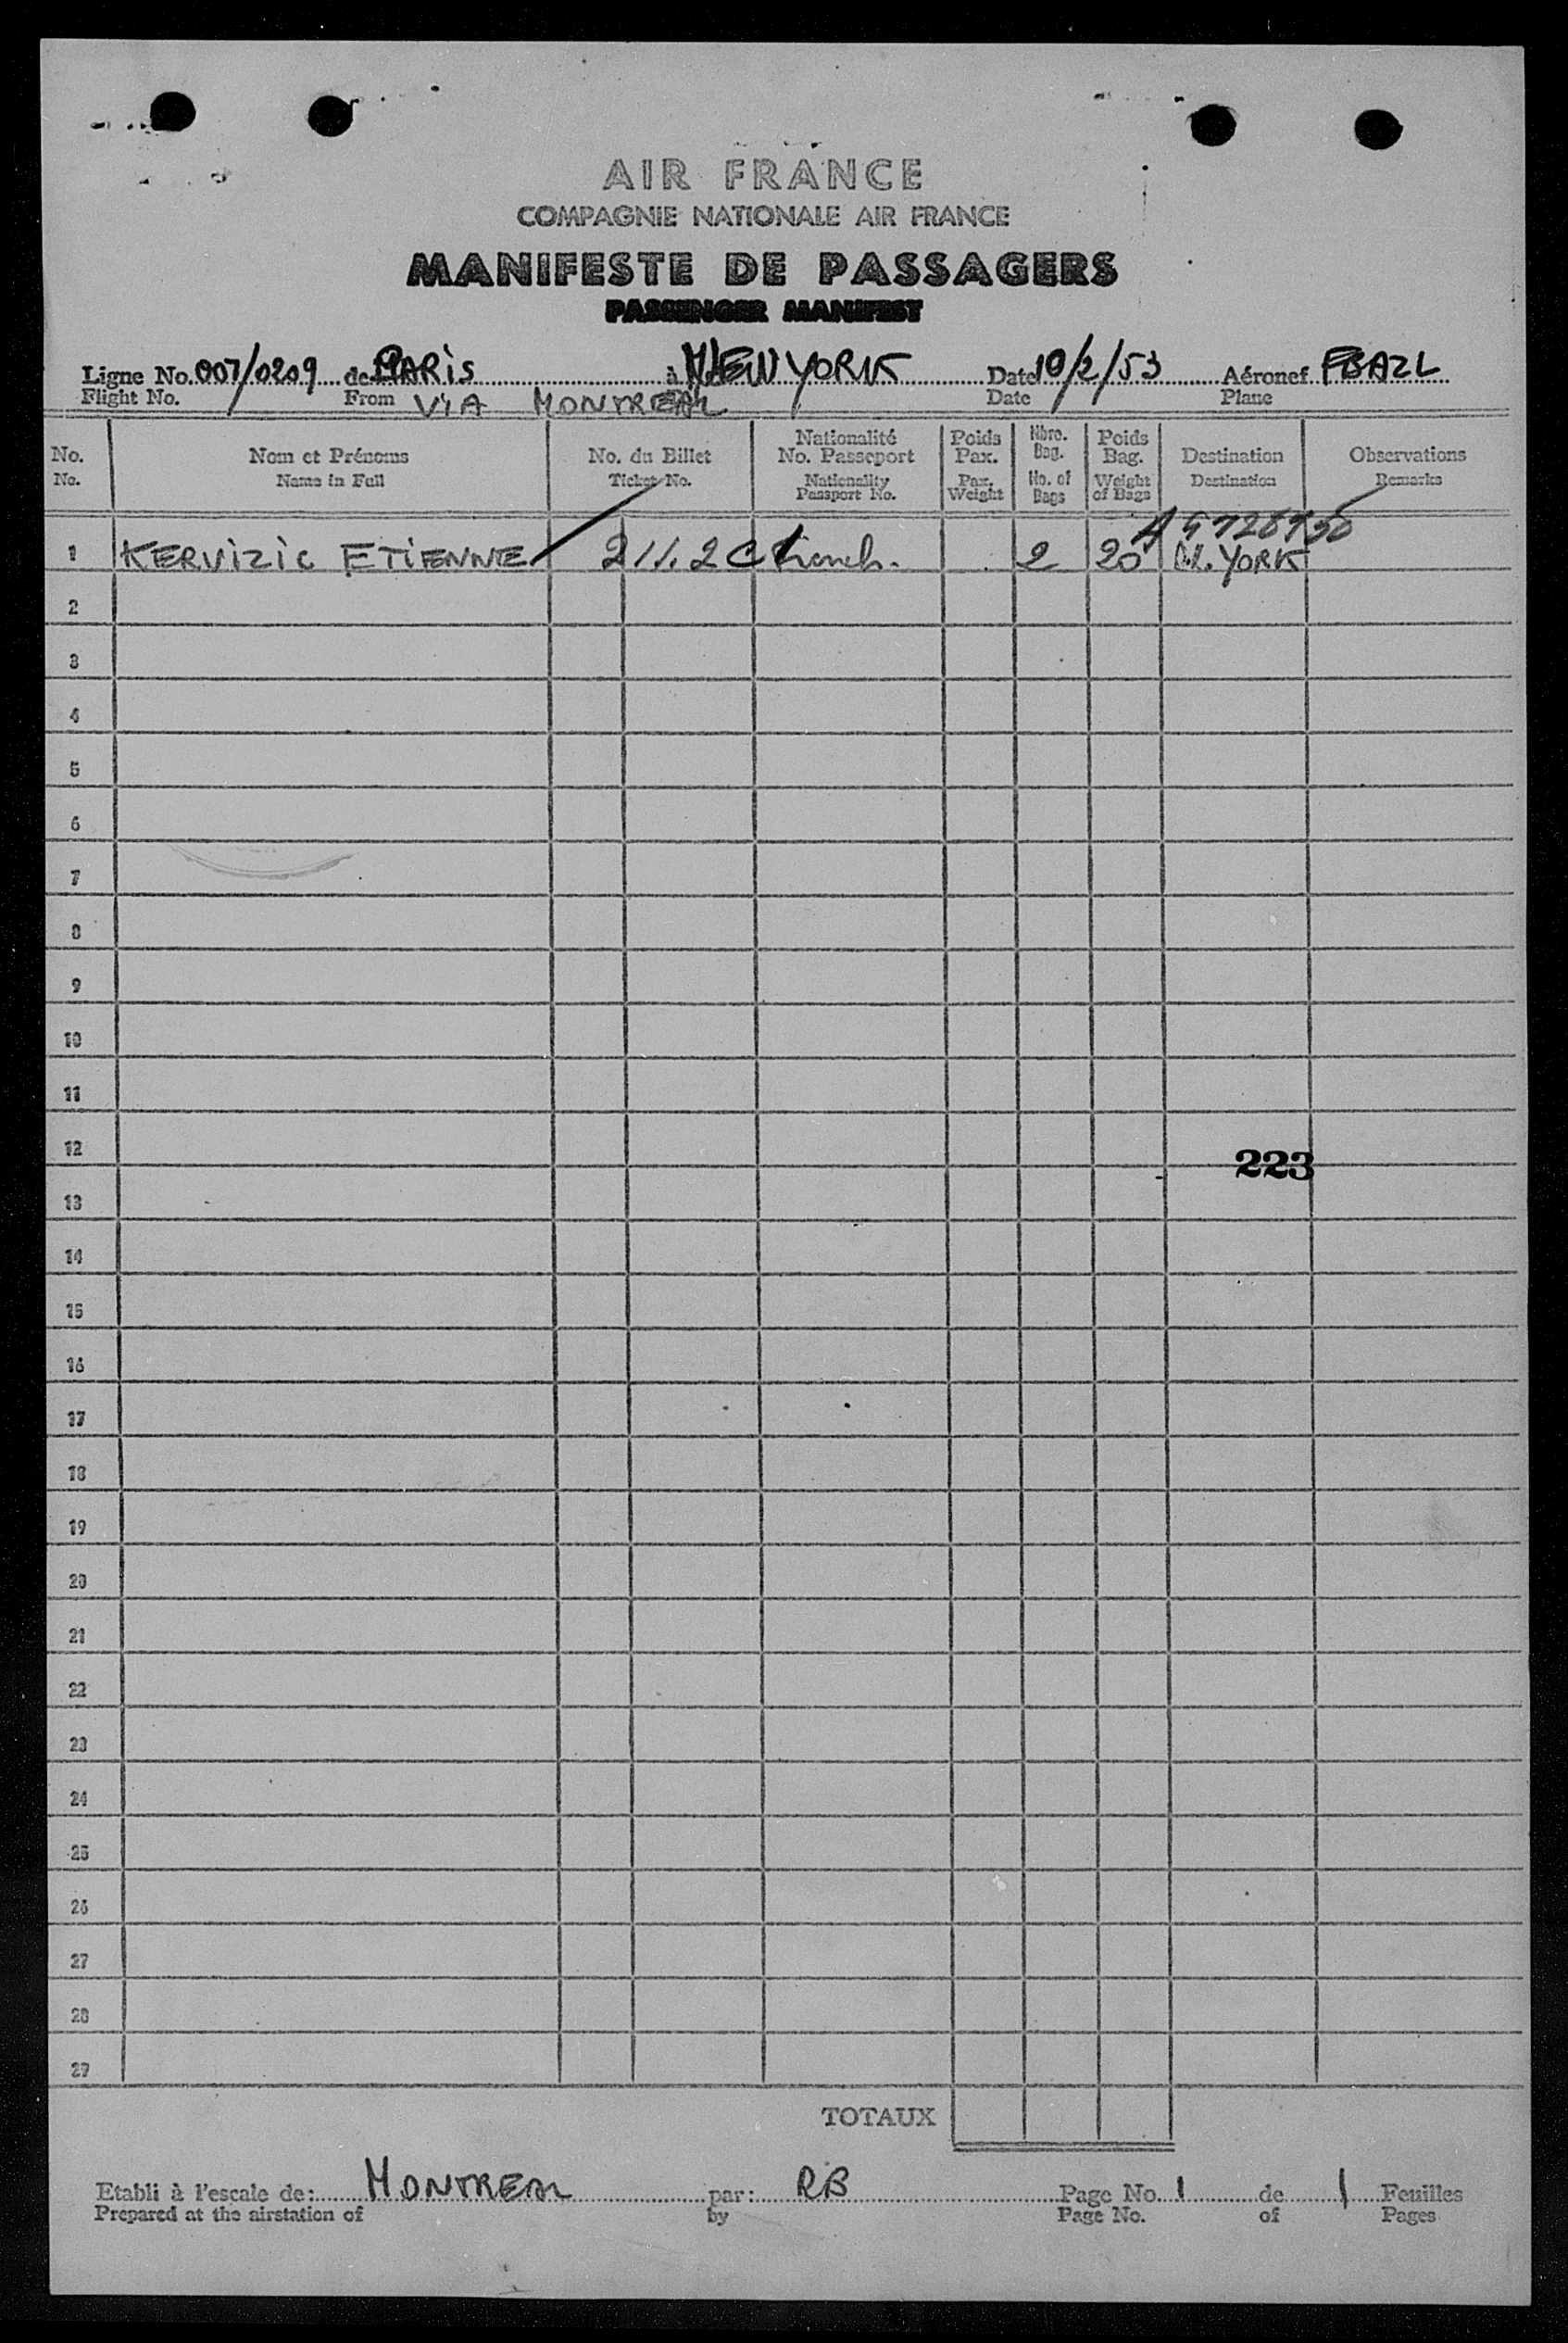 AIR FRANCE
COMPAGNIE NATIONALE AIR FRANCE
MANIFESTE DE PASSAGERS
PASSENGER MANIFEST
Ligne No. 007/0209 de PARIS à NEW YORK Date 10/2/53 Aéronef FBAZL
Flight No. From VIA MONTREAL Date Plane
No. Nom et Prénoms No. du Billet Nationalité No. Passeport Poids Pax. Nbre. Bag. Poids Bag. Destination Observations
No. Name in Full Ticket No. Nationality Passport No. Pax. Weight No. of Bags Weight of Bags Destination Remarks
1 KERVIZIC ETIENNE 2 11.2 C French. 2 20 N. YORK
2
3
4
5
6
7
8
9
10
11
12
223
13
14
15
16
17
18
19
20
21
22
23
24
25
26
27
28
29
TOTAUX
Etabli à l'escale de: MONTREAL par: RB Page No. 1 de 1 Feuilles
Prepared at the airstation of by Page No. of Pages